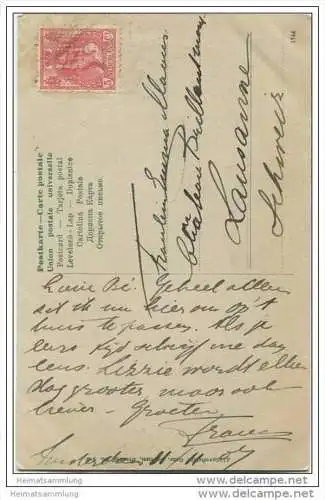 Postkarte—Carte postale
Union postale universelle
Postcard — Tarjeta postal
Levelezö-Lap — Dopisnice
Cartolina Postale
Дописна Карта
Открытое письмо.
1764
Fräulein
Chalon Brillantmont
Lausanne
Schweiz
Lieve Bé. Geheel alleen
zit ik nu hier om op't
huis te passen. Als je
eens tijd schrijf me dan
eens. Lizzie wordt elken
dag grooter maar ook
liever — Groeten
Frans
Heimatsammlung
www.heimatsammlung.de